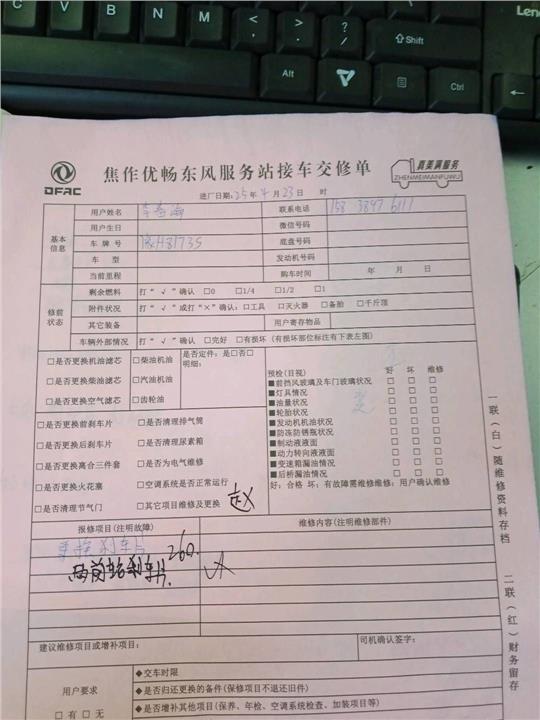 Leno
⇧Shift
Alt
Ctrl
DFAC
焦作优畅东风服务站接车交修单
真美满服务
ZHENMEIMANFUWU
进厂日期:25年4月23日 时
基本信息
用户姓名
联系电话 158 3897 6111
用户生日
微信号码
车牌号 豫H81735
底盘号码
车 型
发动机号码
当前里程
购车时间 年 月 日
修前状态
剩余燃料 打“√”确认 □0 □1/4 □1/2 □1
附件状况 打“√”或打“×”确认:□工具 □灭火器 □备胎 □千斤顶
其它装备
用户寄存物品
车辆外部情况 打“√”确认 □完好 □有损坏(有损坏部位标注有下表左图)
□是否更换机油滤芯 □柴油机油 是否定件:是□否□
□是否更换柴油滤芯 □汽油机油 明细:
□是否更换空气滤芯 □齿轮油
□是否更换前刹车片 □是否清理排气筒
□是否更换后刹车片 □是否清理尿素箱
□是否更换离合三件套 □是否为电气维修
□是否更换火花塞 □空调系统是否正常运行
□是否清理节气门 □其它项目维修及更换
预检(目视) 好 坏 维修
■前挡风玻璃及车门玻璃状况 □ □ □
■灯具情况 □ □ □
■油量状况 □ □ □
■轮胎状况 □ □ □
■发动机机油状况 □ □ □
■防冻防锈瓶状况 □ □ □
■制动液液面 □ □ □
■动力转向液液面 □ □ □
■变速箱漏油情况 □ □ □
■后桥漏油情况 □ □ □
好:合格 坏:有故障需维修维修:用户确认维修
报修项目(注明故障)
维修内容(注明维修部件)
更换刹车片
260.
建议维修项目或增补项目:
司机确认签字:
用户要求
□有□无
◆交车时限
◆是否归还更换的备件(保修项不退还旧件)
◆是否增补其他项目(保养、年检、空调系统检查、加装项目等)
一联(白)随维修资料存档
二联(红)财务留存